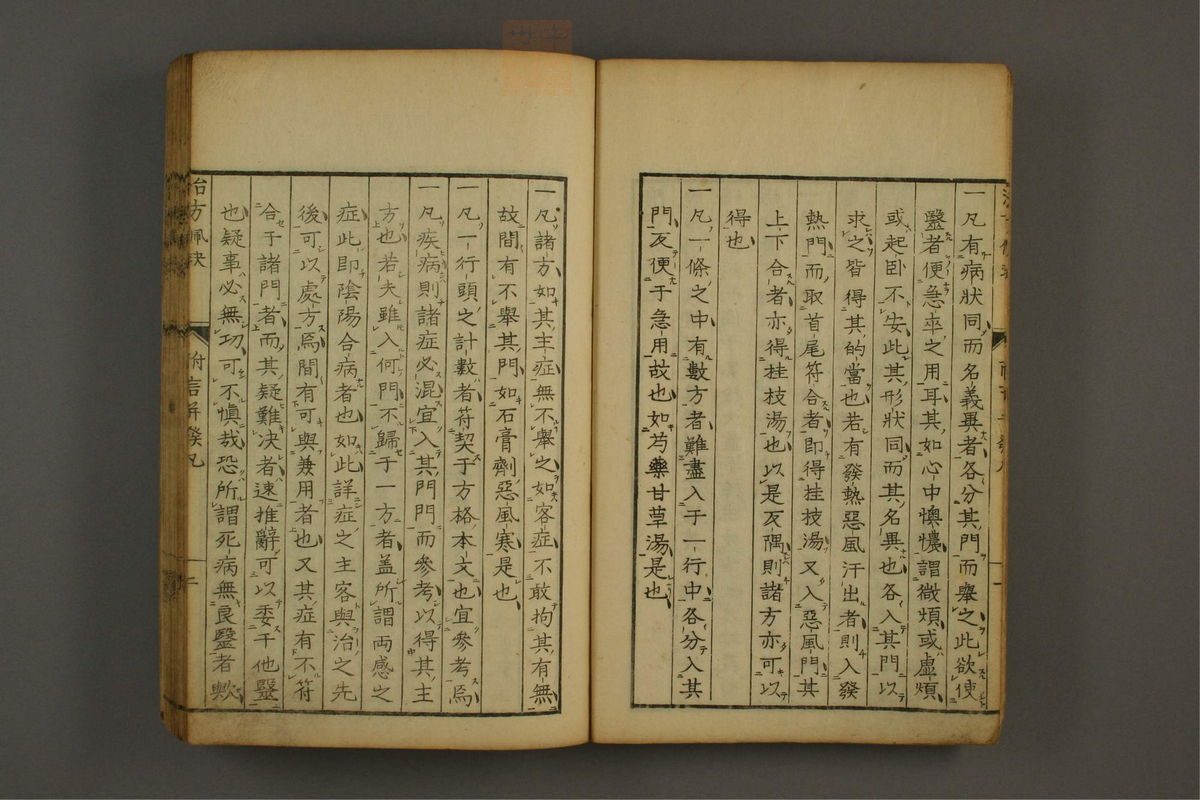 一凡有病狀同而名義異者各分其門而擧之此欲使
毉者便急卒之用耳其如心中懊憹謂微煩或虛煩
或起卧不安此其形狀同而其名異也各入其門以
求之皆得其的當也若有發熱惡風汗出者則入發
熱門而取首尾符合者即得桂枝湯又入惡風門其
上下合者亦得桂枝湯也以是反隅則諸方亦可以
得也
一凡一條之中有數方者難盡入于一行中各分入其
門反便于急用故也如芍藥甘草湯是也
一凡諸方如其主症無不擧之如客症不敢拘其有無
故間有不舉其門如石膏劑惡風寒是也
一凡一行頭之計數者符契于方格本文也宜參考焉
一凡疾病則諸症必混宜入其門門而參考以得其主
方也若夫雖入何門不歸于一方者盖所謂両感之
症此即陰陽合病者也如此詳症之主客與治之先
後可以處方焉間有可與兼用者也又其症有不符
合于諸門者而其疑難决者速推辭可以委于他毉
也疑事必無功可不慎哉恐所謂死病無良毉者歟
治方佩訣 附言幷發凡 二